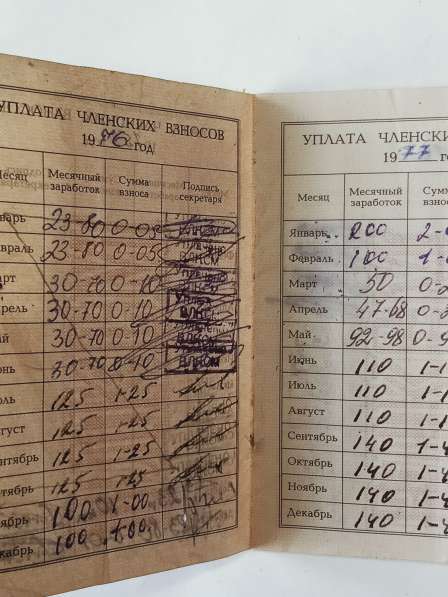 УПЛАТА ЧЛЕНСКИХ ВЗНОСОВ
1976 год
Месяц Месячный заработок Сумма взноса Подпись секретаря
январь 23-80 0-05 Уплачено ВЛКСМ
февраль 23-80 0-05 Уплачено ВЛКСМ
март 30-70 0-10 Уплачено ВЛКСМ
апрель 30-70 0-10 Уплачено ВЛКСМ
май 30-70 0-10 ВЛКСМ
июнь 30-70 0-10 ВЛКСМ
июль 125 1-25
август 125 1-25
сентябрь 125 1-25
октябрь 125 1-25
ноябрь 100 1-00
декабрь 100 1-00
УПЛАТА ЧЛЕНСКИ
1977 го
Месяц Месячный заработок Сумм взнос
Январь 200 2-0
Февраль 100 1-0
Март 50 0-2
Апрель 47-68 0-2
Май 92-98 0-9
Июнь 110 1-1
Июль 110 1-1
Август 110 1-1
Сентябрь 140 1-4
Октябрь 140 1-4
Ноябрь 140 1-4
Декабрь 140 1-4